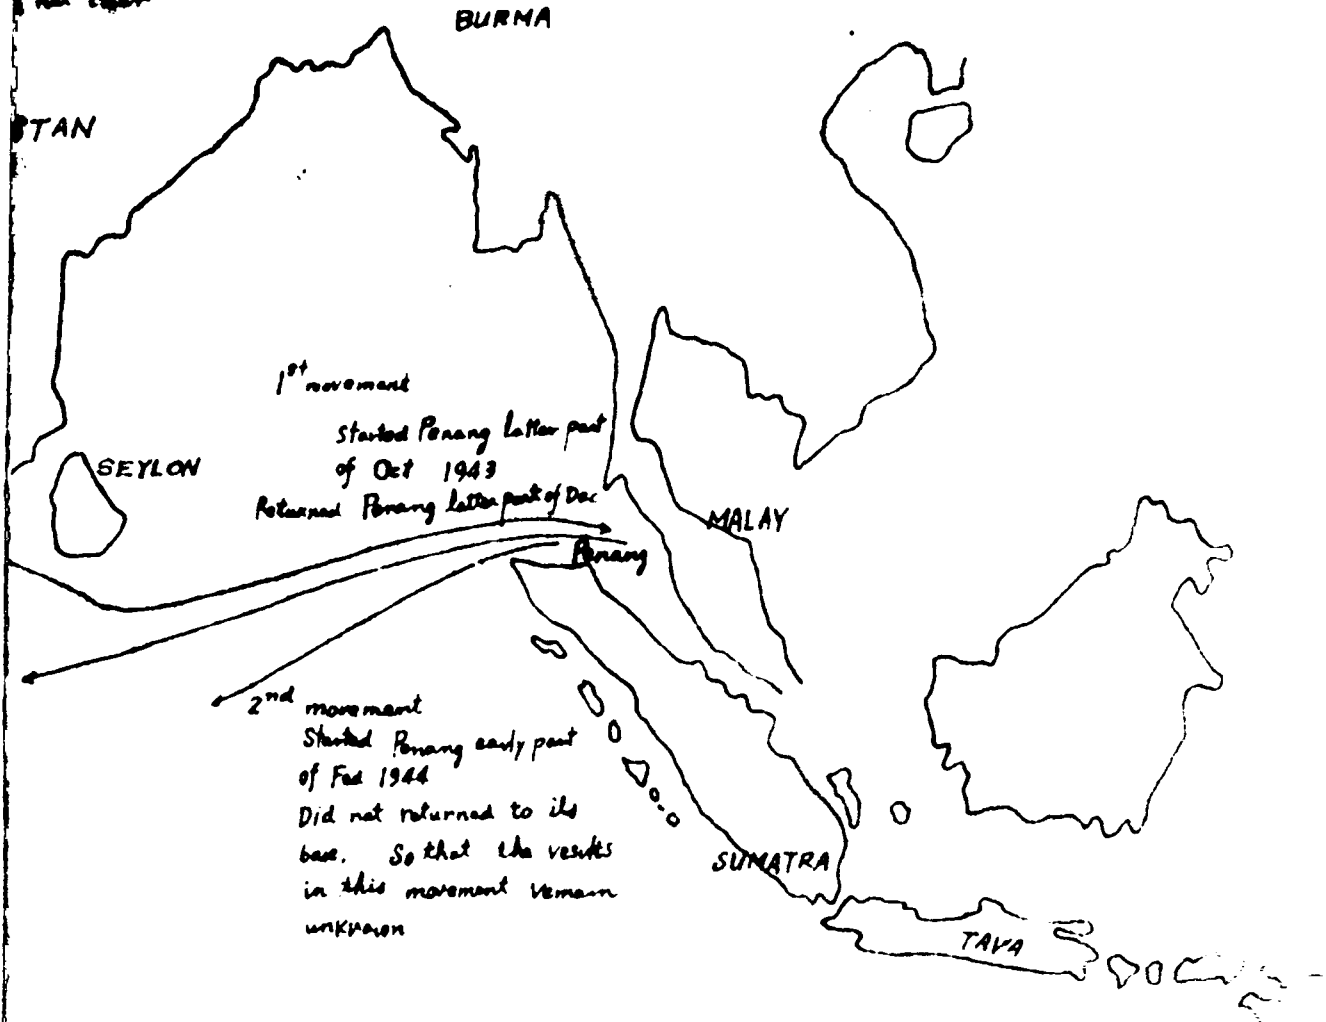 BURMA
TAN
1st movement
Started Penang latter part
of Oct 1943
Returned Penang latter part of Dec
SEYLON
MALAY
Penang
2nd movement
Started Penang early part
of Fed 1944
Did not returned to its
base. So that the vesults
in this movement vemain
unknown
SUMATRA
TAVA